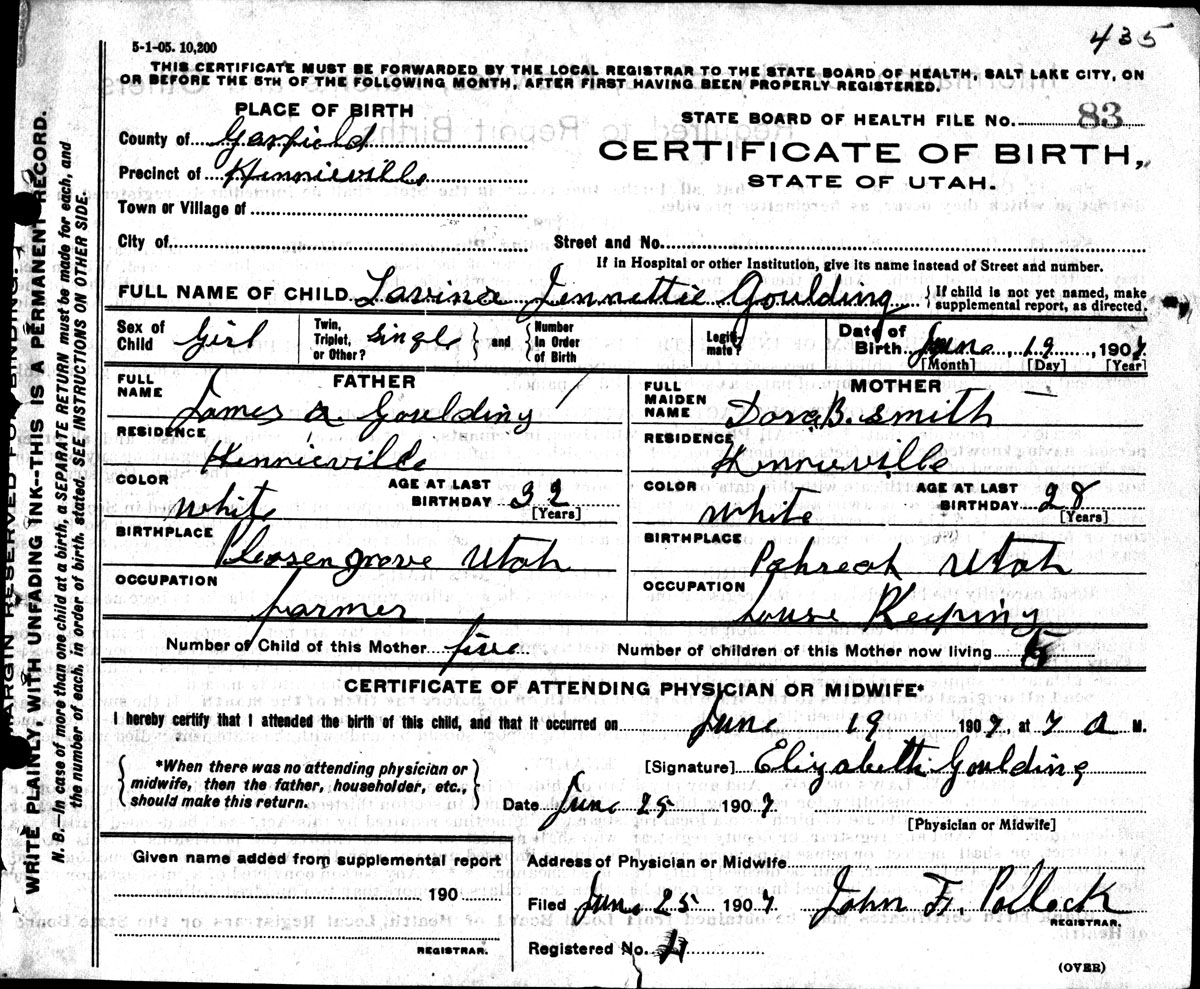 435
5-1-05. 10,200
THIS CERTIFICATE MUST BE FORWARDED BY THE LOCAL REGISTRAR TO THE STATE BOARD OF HEALTH, SALT LAKE CITY, ON
OR BEFORE THE 5TH OF THE FOLLOWING MONTH, AFTER FIRST HAVING BEEN PROPERLY REGISTERED.
PLACE OF BIRTH
County of Garfield
Precinct of Henrieville
Town or Village of
City of
STATE BOARD OF HEALTH FILE NO. 83
CERTIFICATE OF BIRTH,
STATE OF UTAH.
Street and No.
If in Hospital or other Institution, give its name instead of Street and number.
FULL NAME OF CHILD Lavina Jennettie Goulding
{ If child is not yet named, make
supplemental report, as directed.
Sex of Child Girl
Twin, Triplet, or Other? Single
} and { Number In Order of Birth
Legiti- mate?
Date of Birth June 19, 1907
[Month] [Day] [Year]
FATHER
FULL NAME James A. Goulding
RESIDENCE Henrieville
COLOR White
AGE AT LAST BIRTHDAY 32
[Years]
BIRTHPLACE Pleasen grove Utah
OCCUPATION farmer
MOTHER
FULL MAIDEN NAME Dora B. Smith
RESIDENCE Henrieville
COLOR White
AGE AT LAST BIRTHDAY 28
[Years]
BIRTHPLACE Pahreah Utah
OCCUPATION House Keeping
Number of Child of this Mother five
Number of children of this Mother now living 5
CERTIFICATE OF ATTENDING PHYSICIAN OR MIDWIFE*
I hereby certify that I attended the birth of this child, and that it occurred on June 19 1907, at 7 a M.
{ *When there was no attending physician or
midwife, then the father, householder, etc.,
should make this return. }
[Signature] Elizabeth Goulding
Date June 25 1907
[Physician or Midwife]
Given name added from supplemental report
190
REGISTRAR.
Address of Physician or Midwife
Filed June 25 1907 John F. Pollock
REGISTRAR.
Registered No.
(OVER)
MARGIN RESERVED FOR BINDING.
WRITE PLAINLY, WITH UNFADING INK--THIS IS A PERMANENT RECORD.
N. B.--In case of more than one child at a birth, a SEPARATE RETURN must be made for each, and
the number of each, in order of birth, stated. SEE INSTRUCTIONS ON OTHER SIDE.